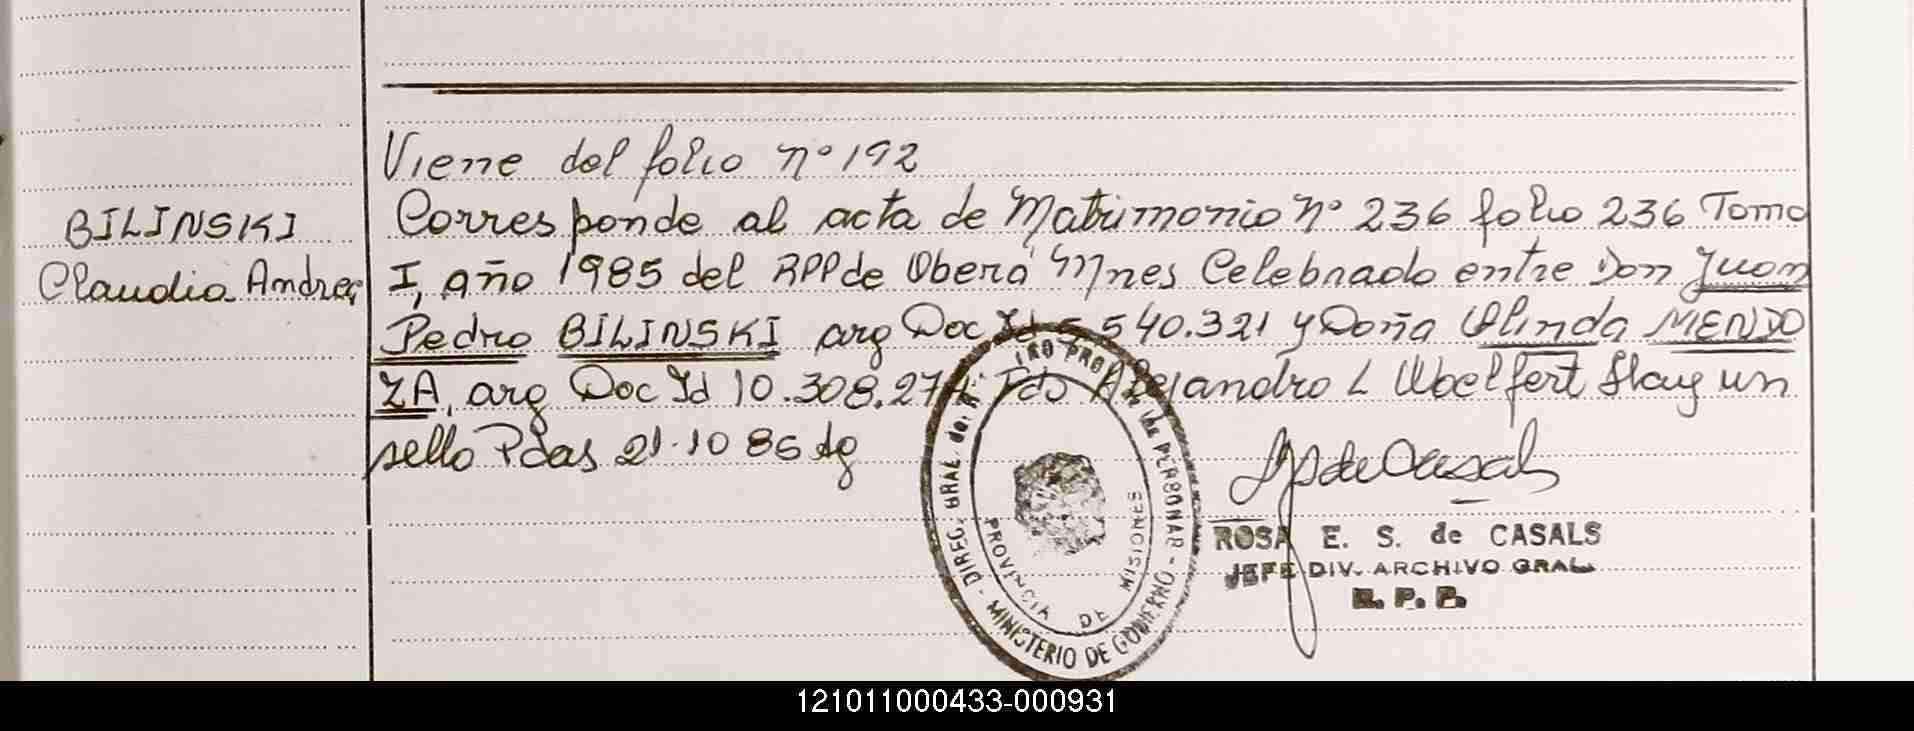 Viene del folio nº 192
BILINSKI
Claudia Andrea
Corresponde al acta de Matrimonio nº 236 folio 236 Tomo
I, año 1985 del RPP de Oberá Mnes Celebrado entre Don Juan
Pedro BILINSKI arg Doc Id 5.540.321 y Doña Olinda MENDO
ZA, arg Doc Id 10.308.274. Fdo Alejandro L Woelfert Hay un
sello Pdas 21-10 86 dg
DIREC. GRAL. del PROV. de las PERSONAS - MINISTERIO DE GOBIERNO -
PROVINCIA DE MISIONES
ROSA E. S. de CASALS
JEFE DIV. ARCHIVO GRAL
R. P. P.
121011000433-000931